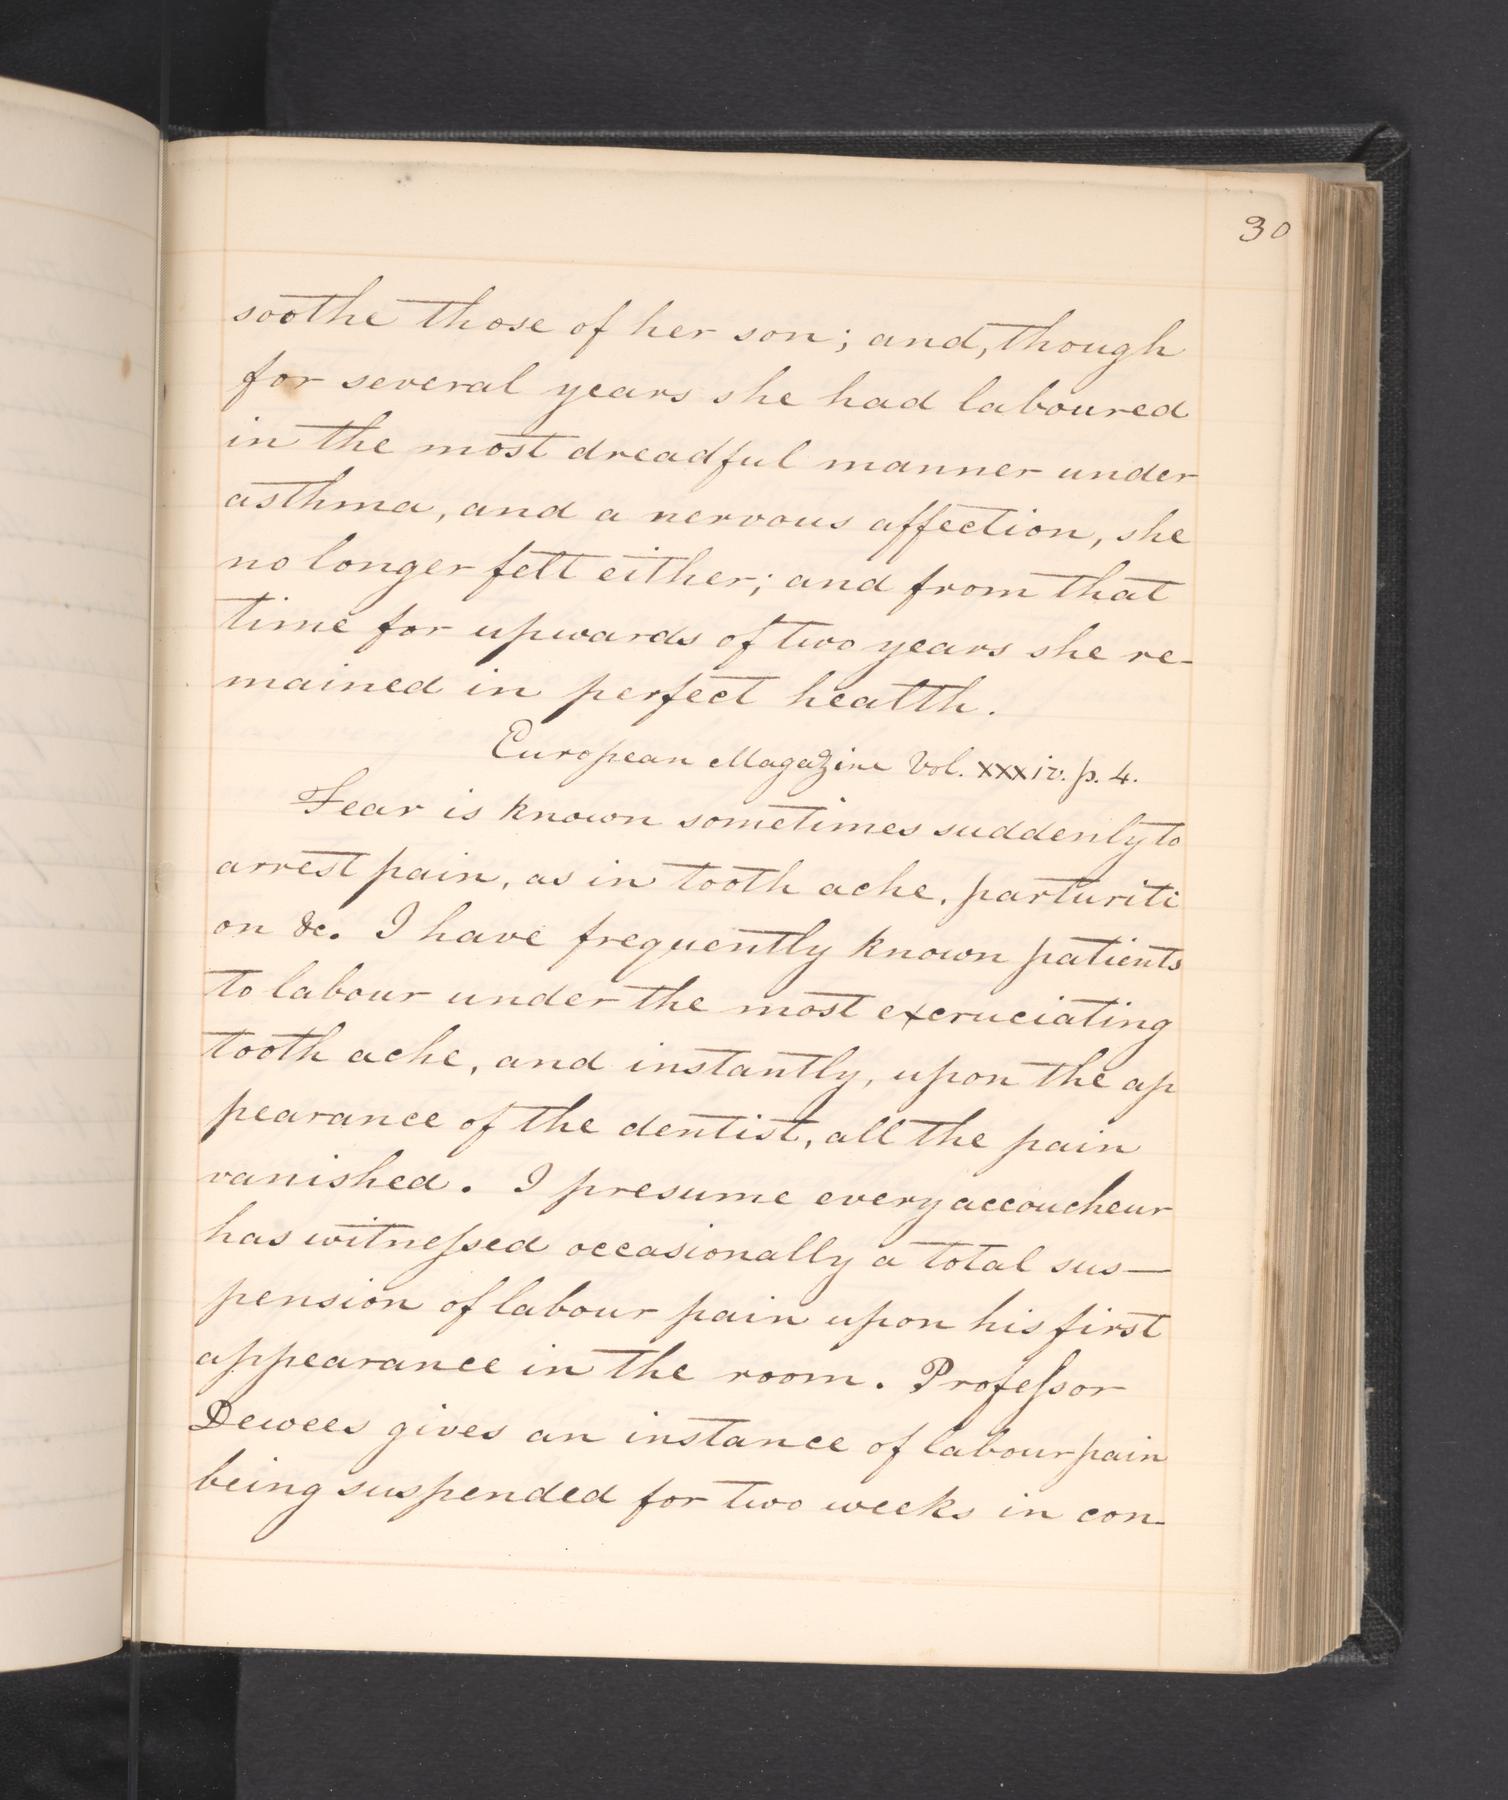 30
soothe those of her son; and, though
for several years she had laboured
in the most dreadful manner under
asthma, and a nervous affection, she
no longer felt either; and from that
time for upwards of two years she re-
mained in perfect health.
European Magazine Vol. xxxiv. p. 4.
Fear is known sometimes suddenly to
arrest pain, as in tooth ache, parturiti
on &c. I have frequently known patients
to labour under the most excruciating
tooth ache, and instantly, upon the ap
pearance of the dentist, all the pain
vanished. I presume every accoucheur
has witneſsed occasionally a total sus—
pension of labour pain upon his first
appearance in the room. Profeſsor
Dewees gives an instance of labour pain
being suspended for two weeks in con-